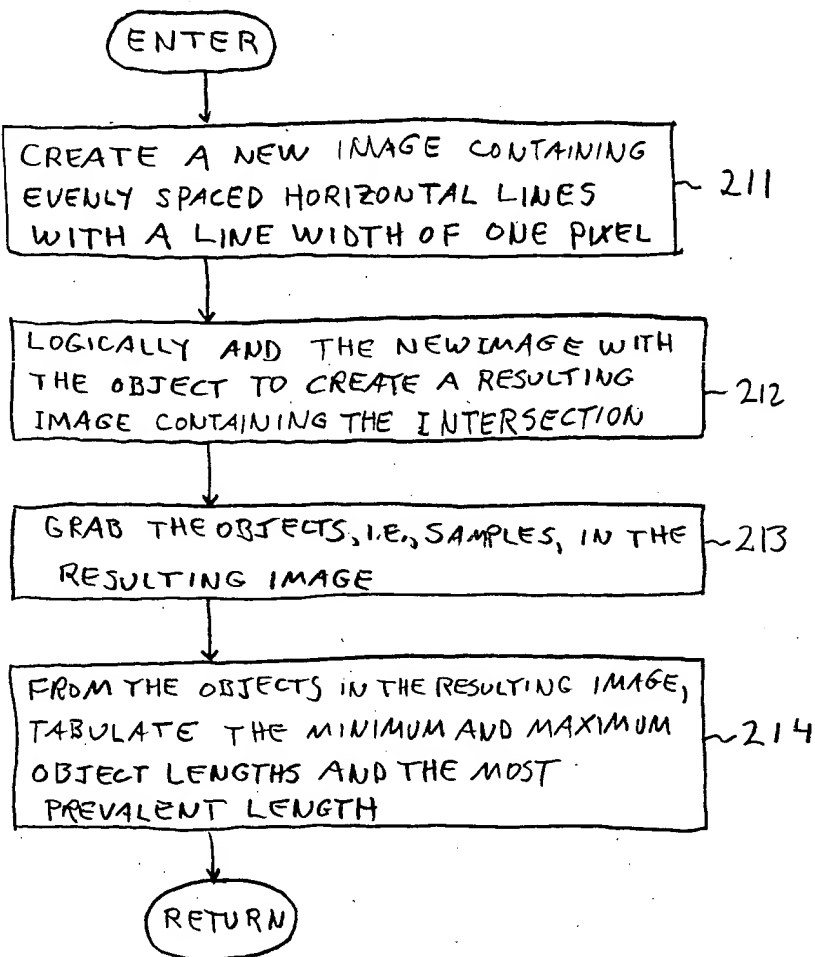 ENTER
CREATE A NEW IMAGE CONTAINING
EVENLY SPACED HORIZONTAL LINES
WITH A LINE WIDTH OF ONE PIXEL
211
LOGICALLY AND THE NEW IMAGE WITH
THE OBJECT TO CREATE A RESULTING
IMAGE CONTAINING THE INTERSECTION
212
GRAB THE OBJECTS, I.E., SAMPLES, IN THE
RESULTING IMAGE
213
FROM THE OBJECTS IN THE RESULTING IMAGE,
TABULATE THE MINIMUM AND MAXIMUM
OBJECT LENGTHS AND THE MOST
PREVALENT LENGTH
214
RETURN